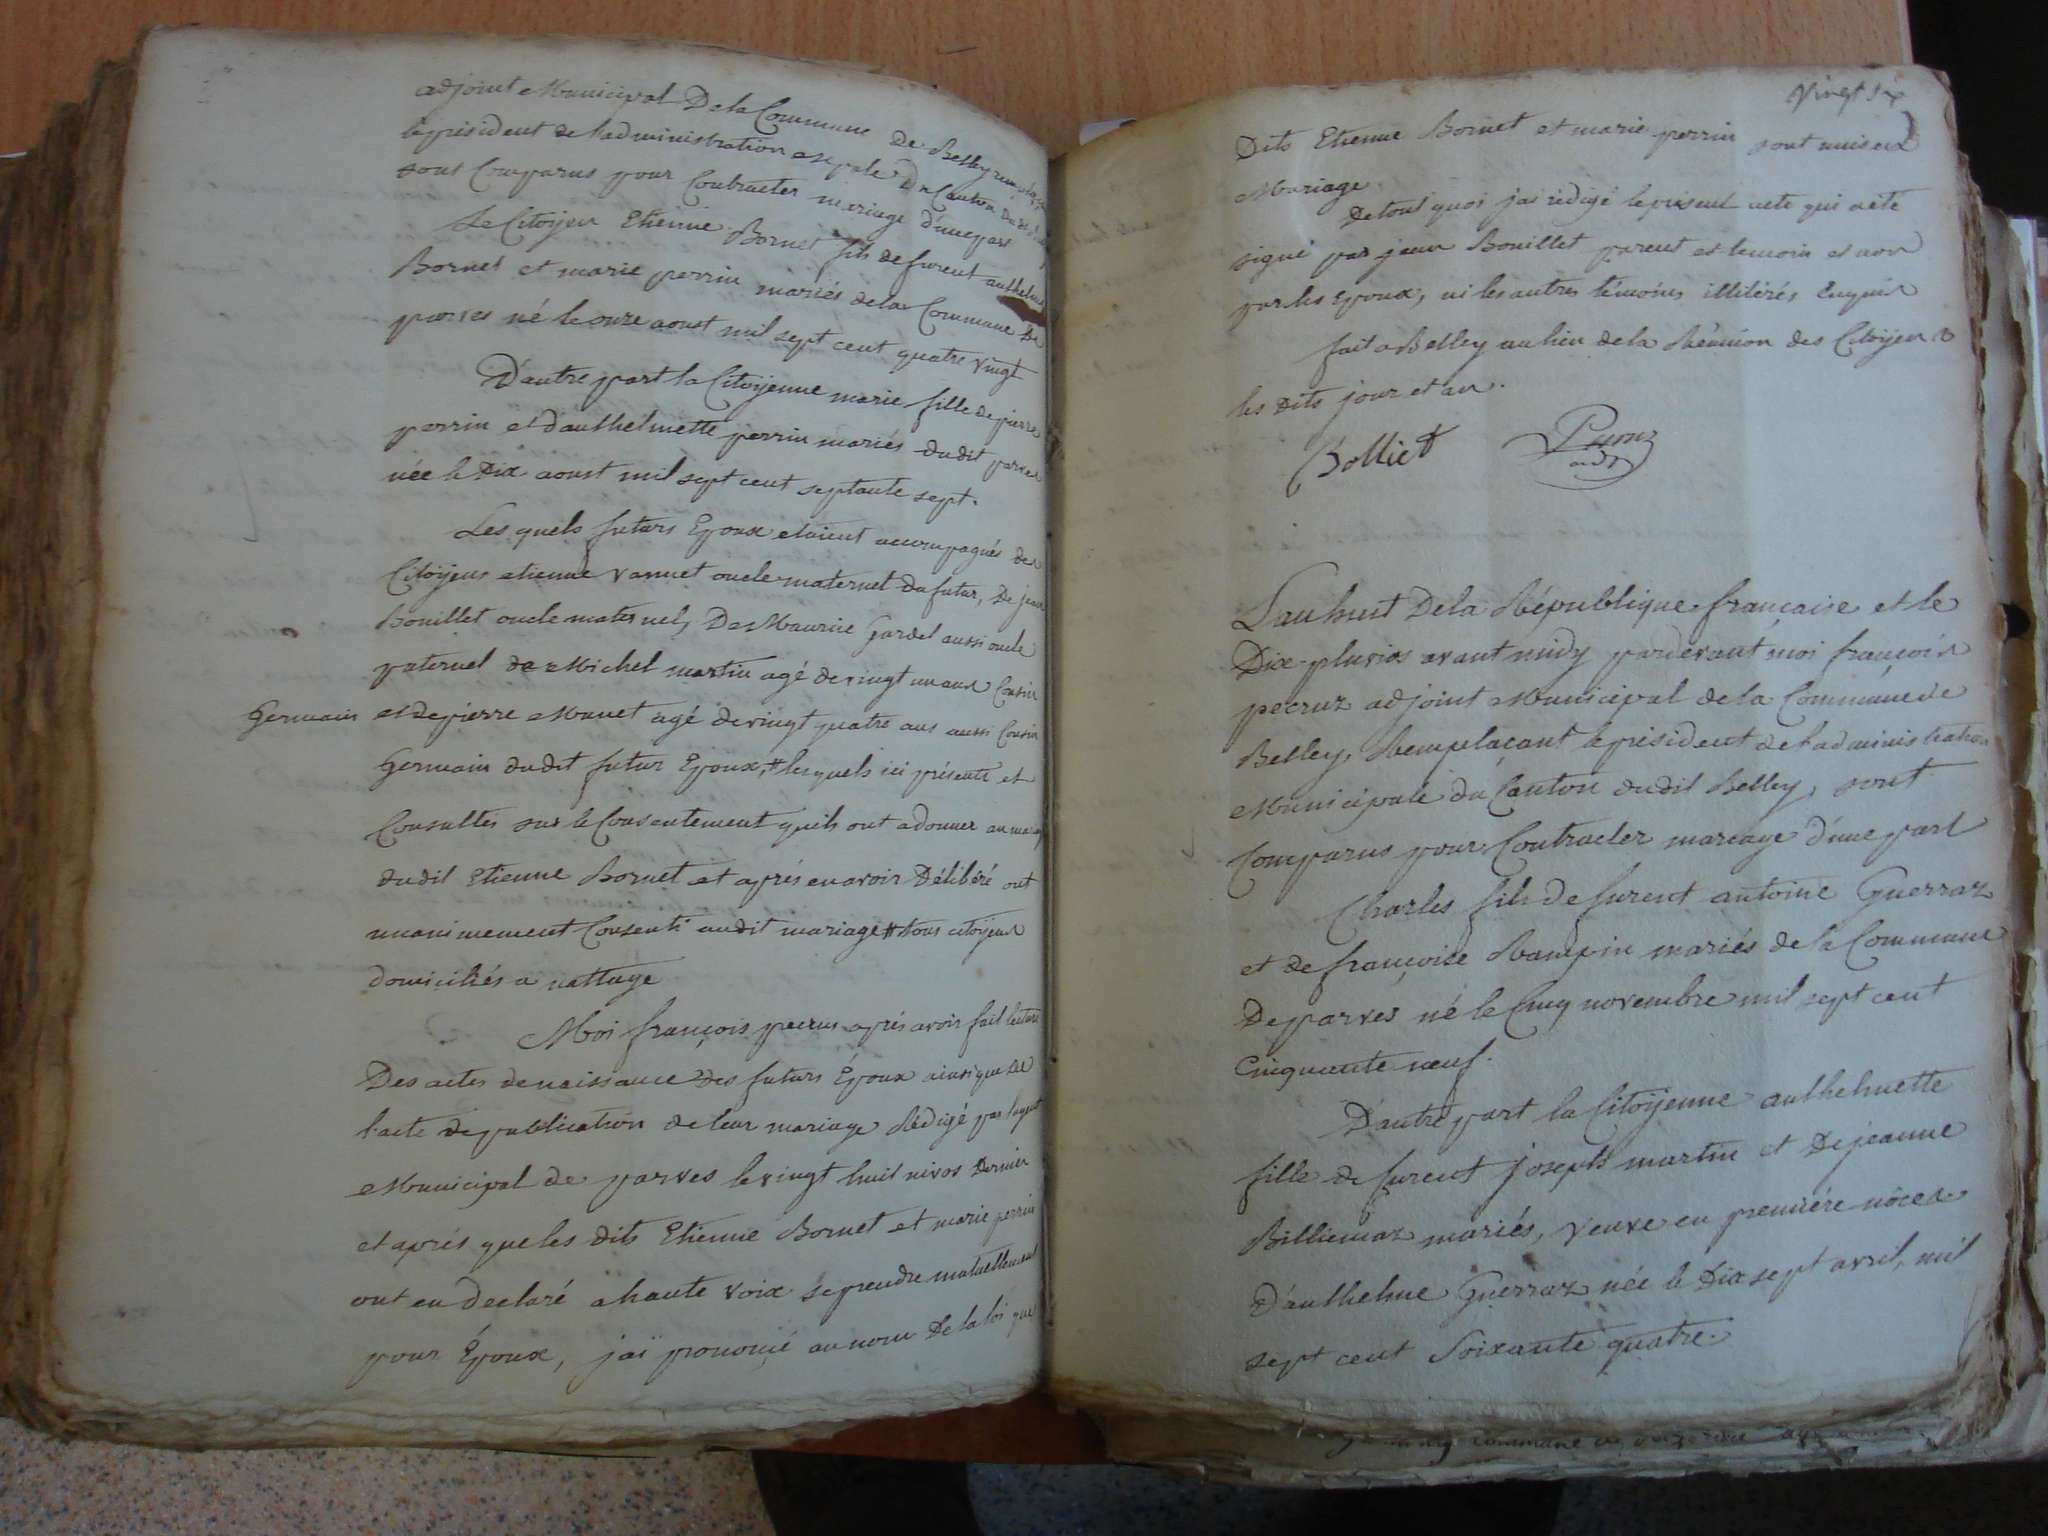 adjoint Municipal De la Commune De Belley remplaçant
le président de l'administration mpale Du Canton
sont Comparus pour Contracter mariage d'une part
Le Citoyen Etienne Bornet fils de furent anthelme
Bornet et marie perrin mariés de la Commune De
parves né le onze aoust mil sept cent quatre vingt
D'autre part la Citoyenne marie fille de pierre
perrin et d'anthelmette perrin mariés du dit parves
née le Dix aoust mil sept cent septante sept.
Les quels futurs Epoux etaient accompagnés des
Citoyens etienne vannet oncle maternel du futur, De jean
Bouillet oncle maternel, De Maurice Gardel aussi oncle
paternel de Michel martin agé de vingt un ans Cousin
Germain et de pierre Manet agé de vingt quatre ans aussi Cousin
Germain du dit futur Epoux, # lesquels ici présents et
Consultés sur le Consentement qu'ils ont a donner au mariage
du dit Etienne Bornet et aprés en avoir Délibéré ont
unanimement Consenti au dit mariage # tous citoyens
domiciliés a nattage
Moi françois pecruz aprés avoir fait lecture
Des actes de naissance des futurs Epoux ainsi que de
l'acte de publication de leur mariage Rédigé par l'agent
Municipal de parves le vingt huit nivos Dernier
et aprés que les dits Etienne Bornet et marie perrin
ont eu declaré a haute voix se prendre mutuellement
pour Epoux, j'ai prononcé au nom De la loi que
Vingt Six
Dits Etienne Bornet et marie perrin sont unis en
Mariage
De tout quoi j'ai rédigé le présent acte qui a été
signé par jean Bouillet parent et temoin et non
par les Epoux, ni les autres témoins illitérés Enquis
fait a Belley au lieu de la Réunion des Citoyens
les dits jour et an.
Bolliet Pecruz
adj
L'an huit De la République française et le
Dix pluvios avant midy pardevant moi françois
pecruz adjoint Municipal de la Commune de
Belley, Remplaçant le président de l'administration
Municipale du Canton du dit Belley, sont
Comparus pour Contracter mariage d'une part
Charles fils de furent antoine Guerraz
et de françoise Rampin mariés de la Commune
De parves né le Cinq novembre mil sept cent
Cinquante neuf.
D'autre part la Citoyenne anthelmette
fille de furent joseph martin et De jeanne
Billiemaz mariés, veuve en première nôces
D'anthelme Guerraz née le Dix sept avril, mil
sept cent Soixante quatre.